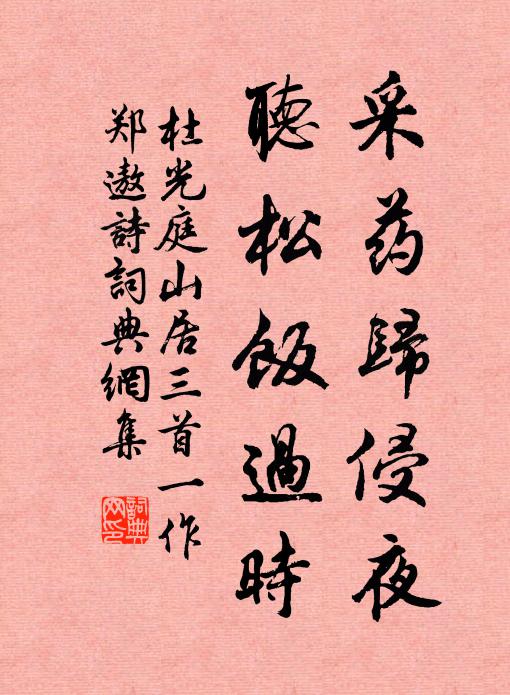 采药歸侵夜
聽松飯過時
杜光庭山居三首一作
郑遨詩詞典網集
詞典网印